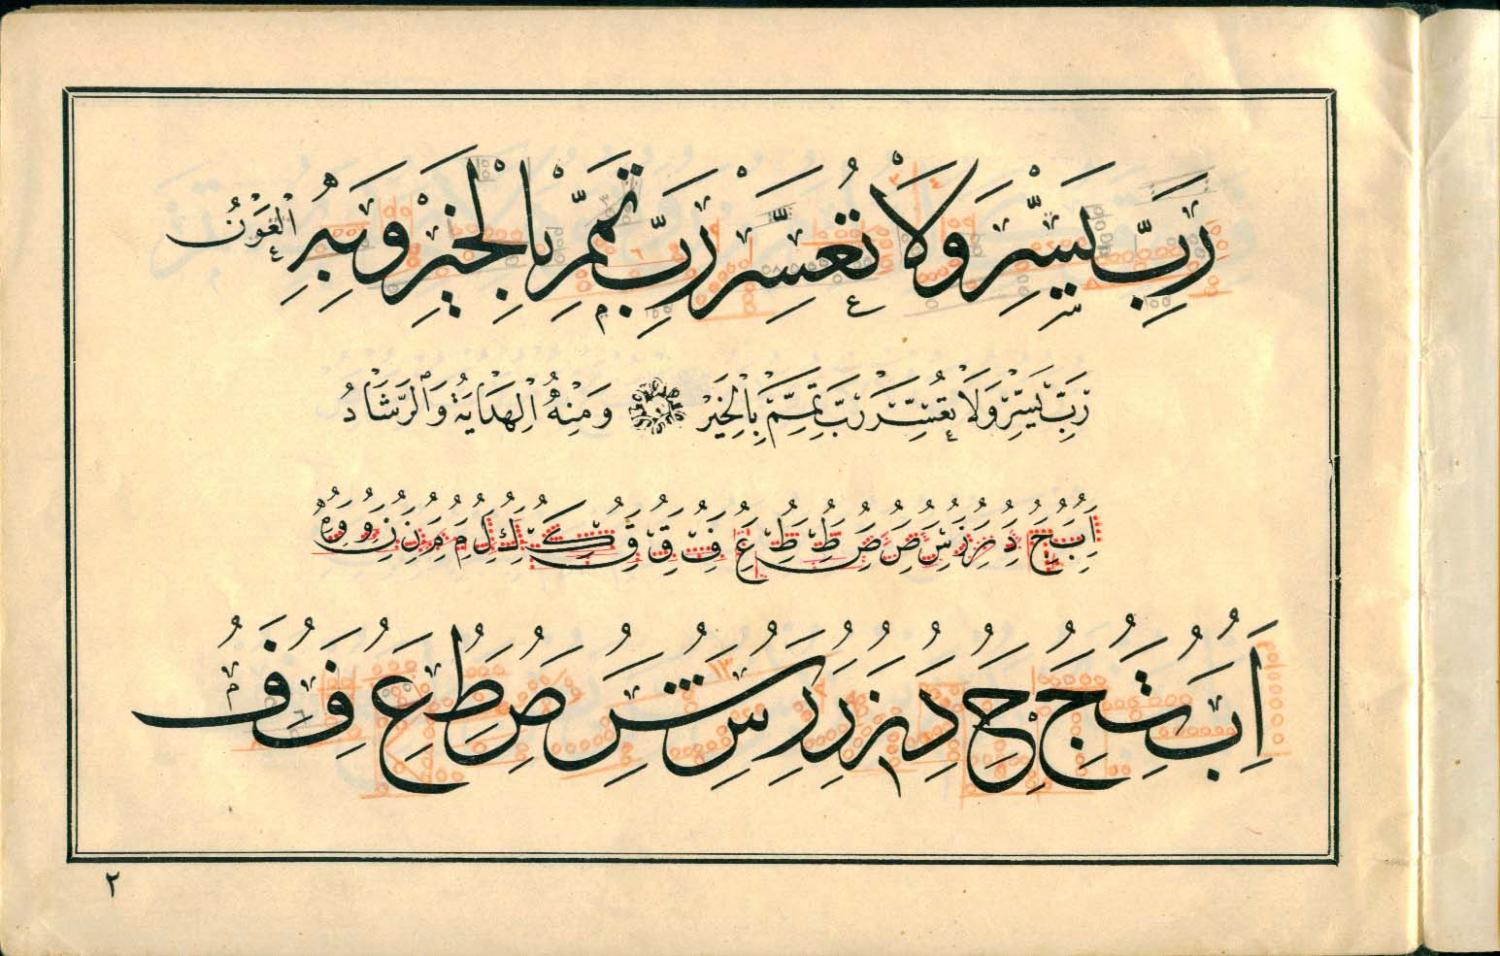 رَبِّ يَسِّرْ وَلَا تُعَسِّرْ رَبِّ تَمِّمْ بِالْخَيْرِ وَبِهِ الْعَوْنُ
رَبِّ يَسِّرْ وَلَا تُعَسِّرْ رَبِّ تَمِّمْ بِالْخَيْرِ وَمِنْهُ الْهِدَايَةُ وَالرَّشَادُ
ا ب ج د ر ز س ص ص ط ط ع ف ق ق ك ك ل م م ن ن و و ه
ا ب ت ج ح د ر ر ر س ش ص ط ع ف ف
٢